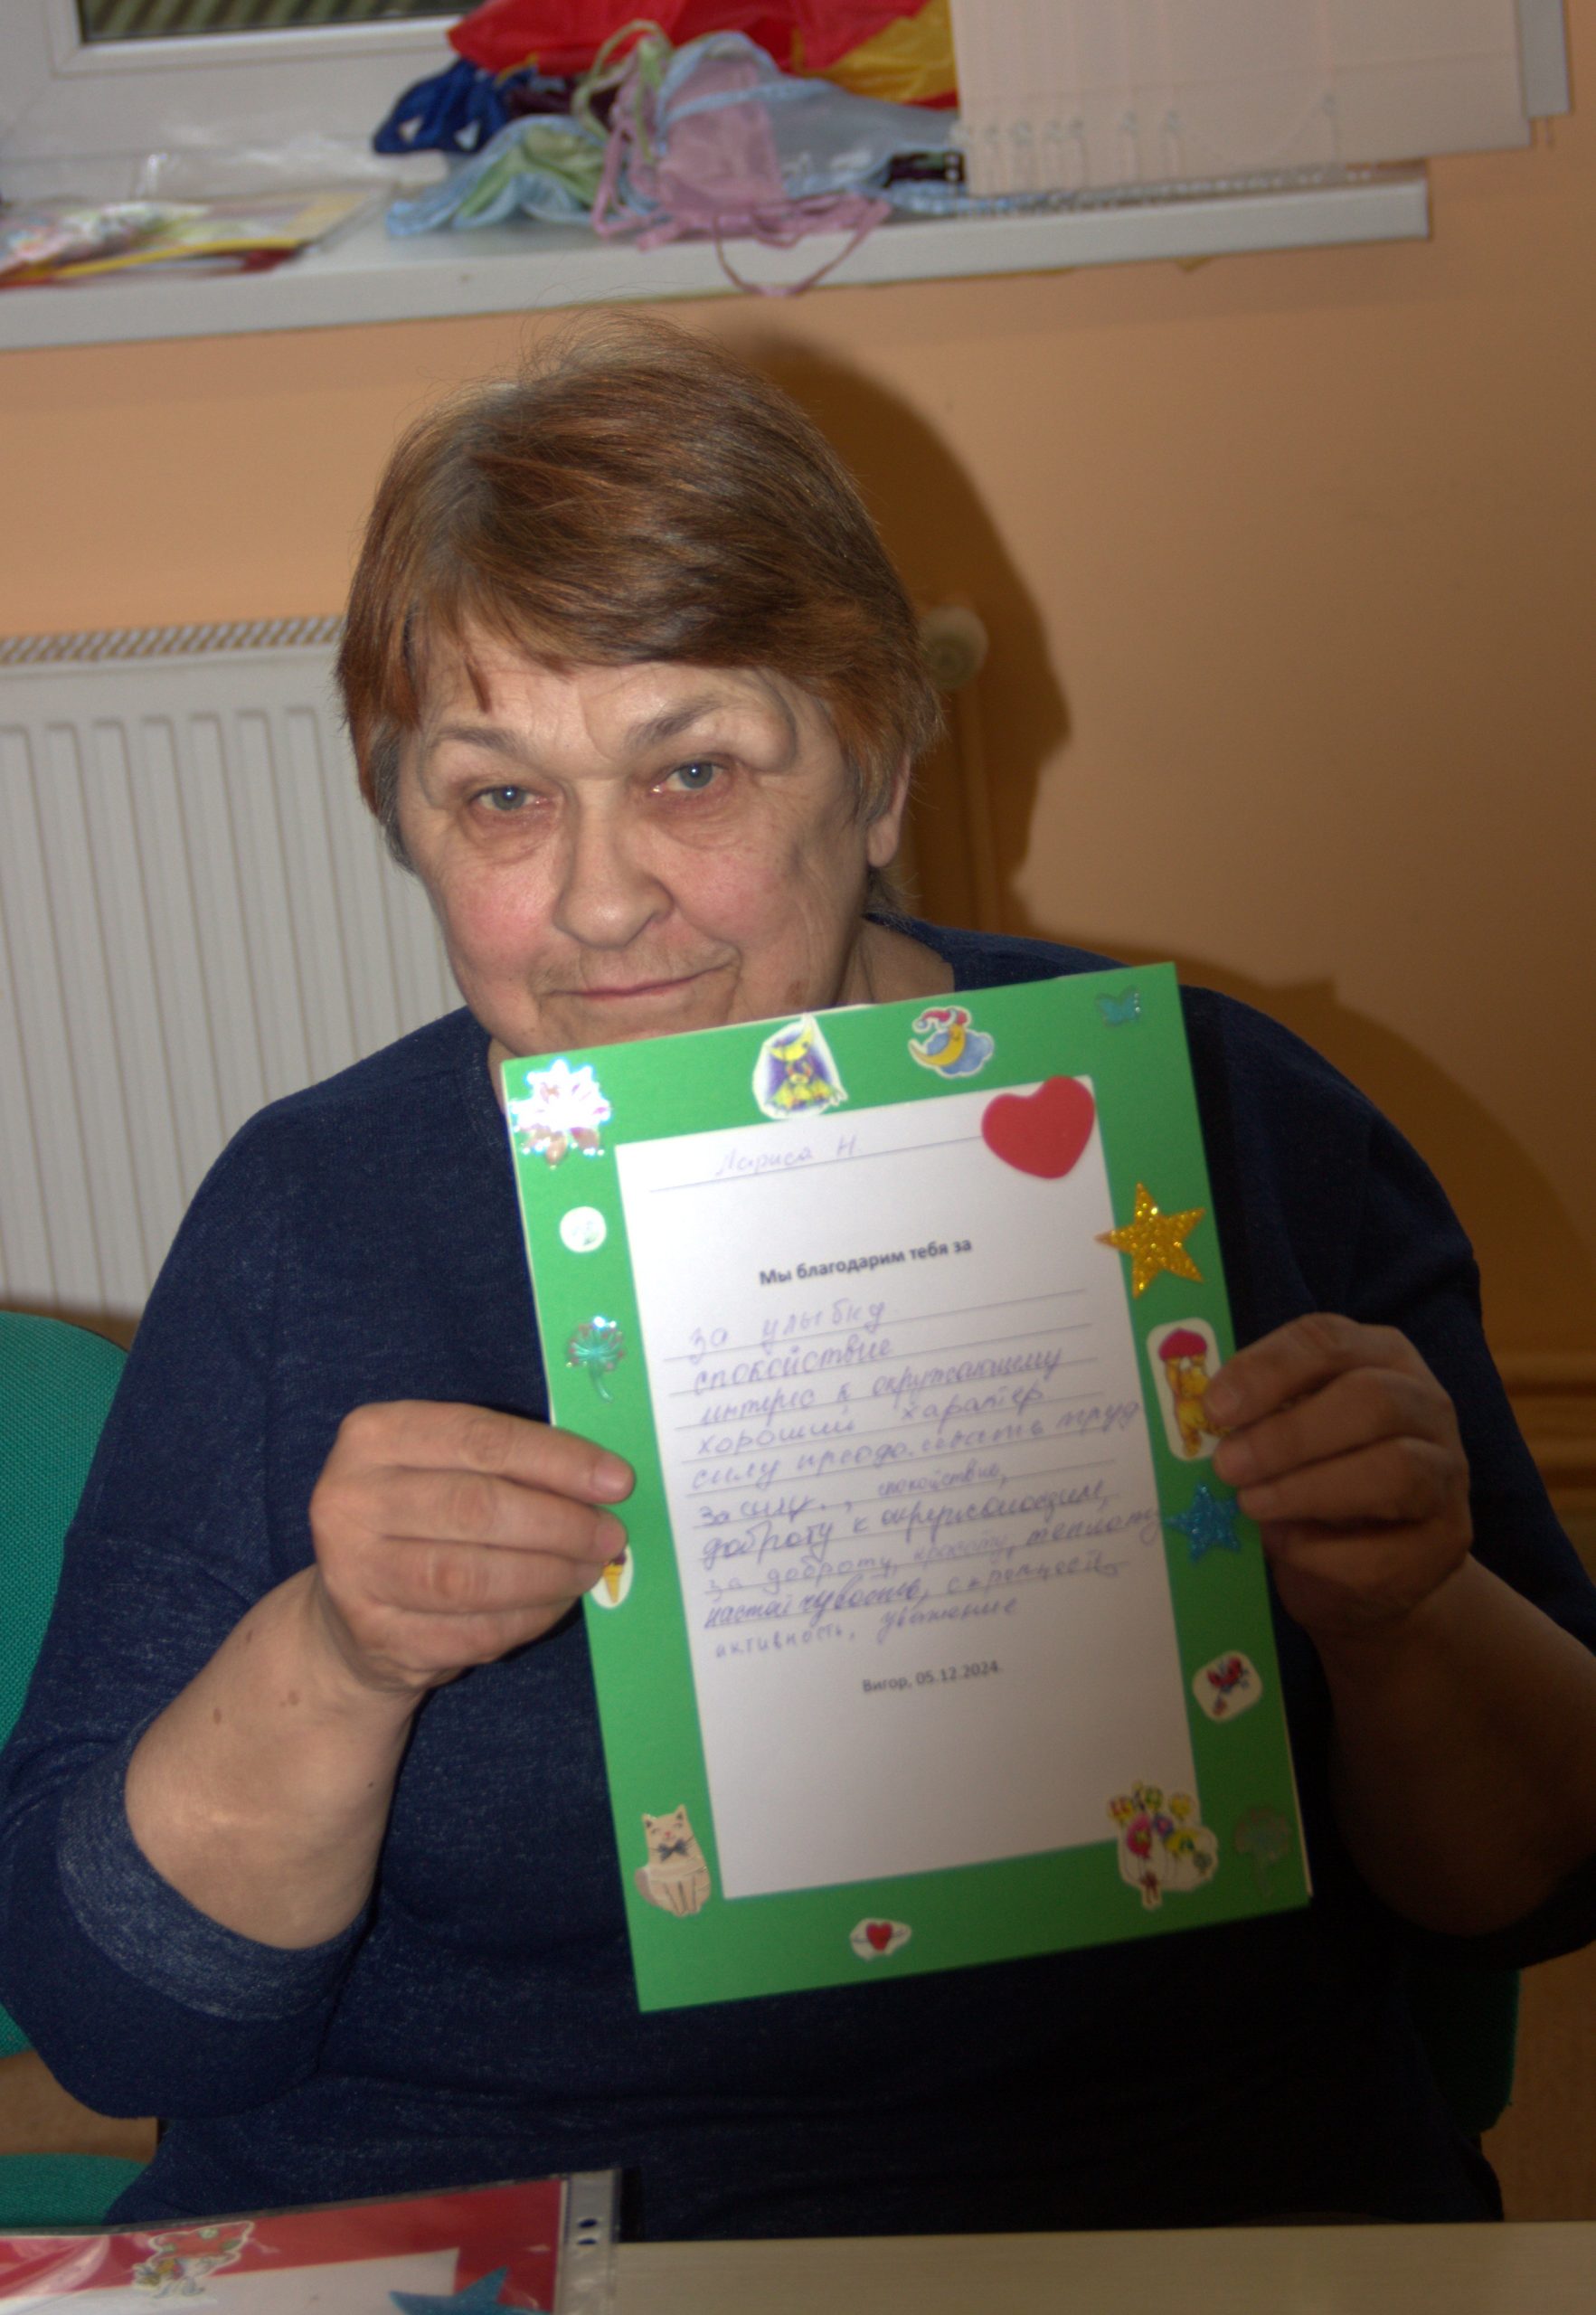 Лариса Н.
Мы благодарим тебя за
за улыбку
спокойствие
интерес к окружающему
хороший характер
силу преодолевать труд
за силу, спокойствие,
доброту к окружающим,
за доброту, красоту, теплоту
активность, уважение
Вигор, 05.12.2024.